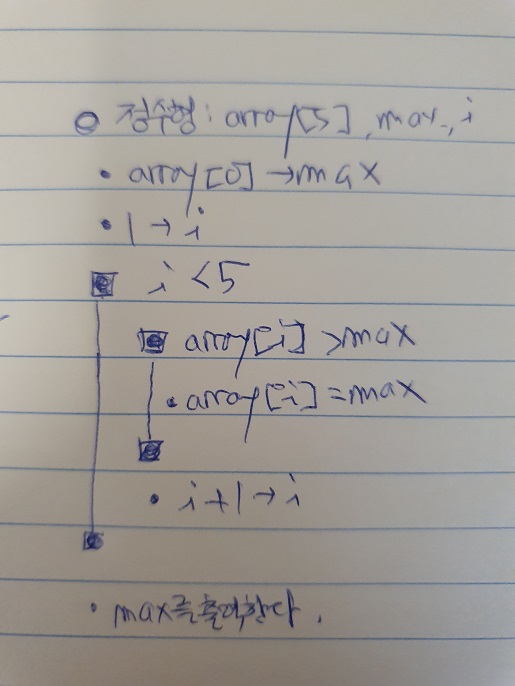 ○ 정수형: array[5], max, i
• array[0] → max
• 1 → i
■ i < 5
■ array[i] > max
• array[i] = max
■
• i + 1 → i
■
• max를 출력한다.